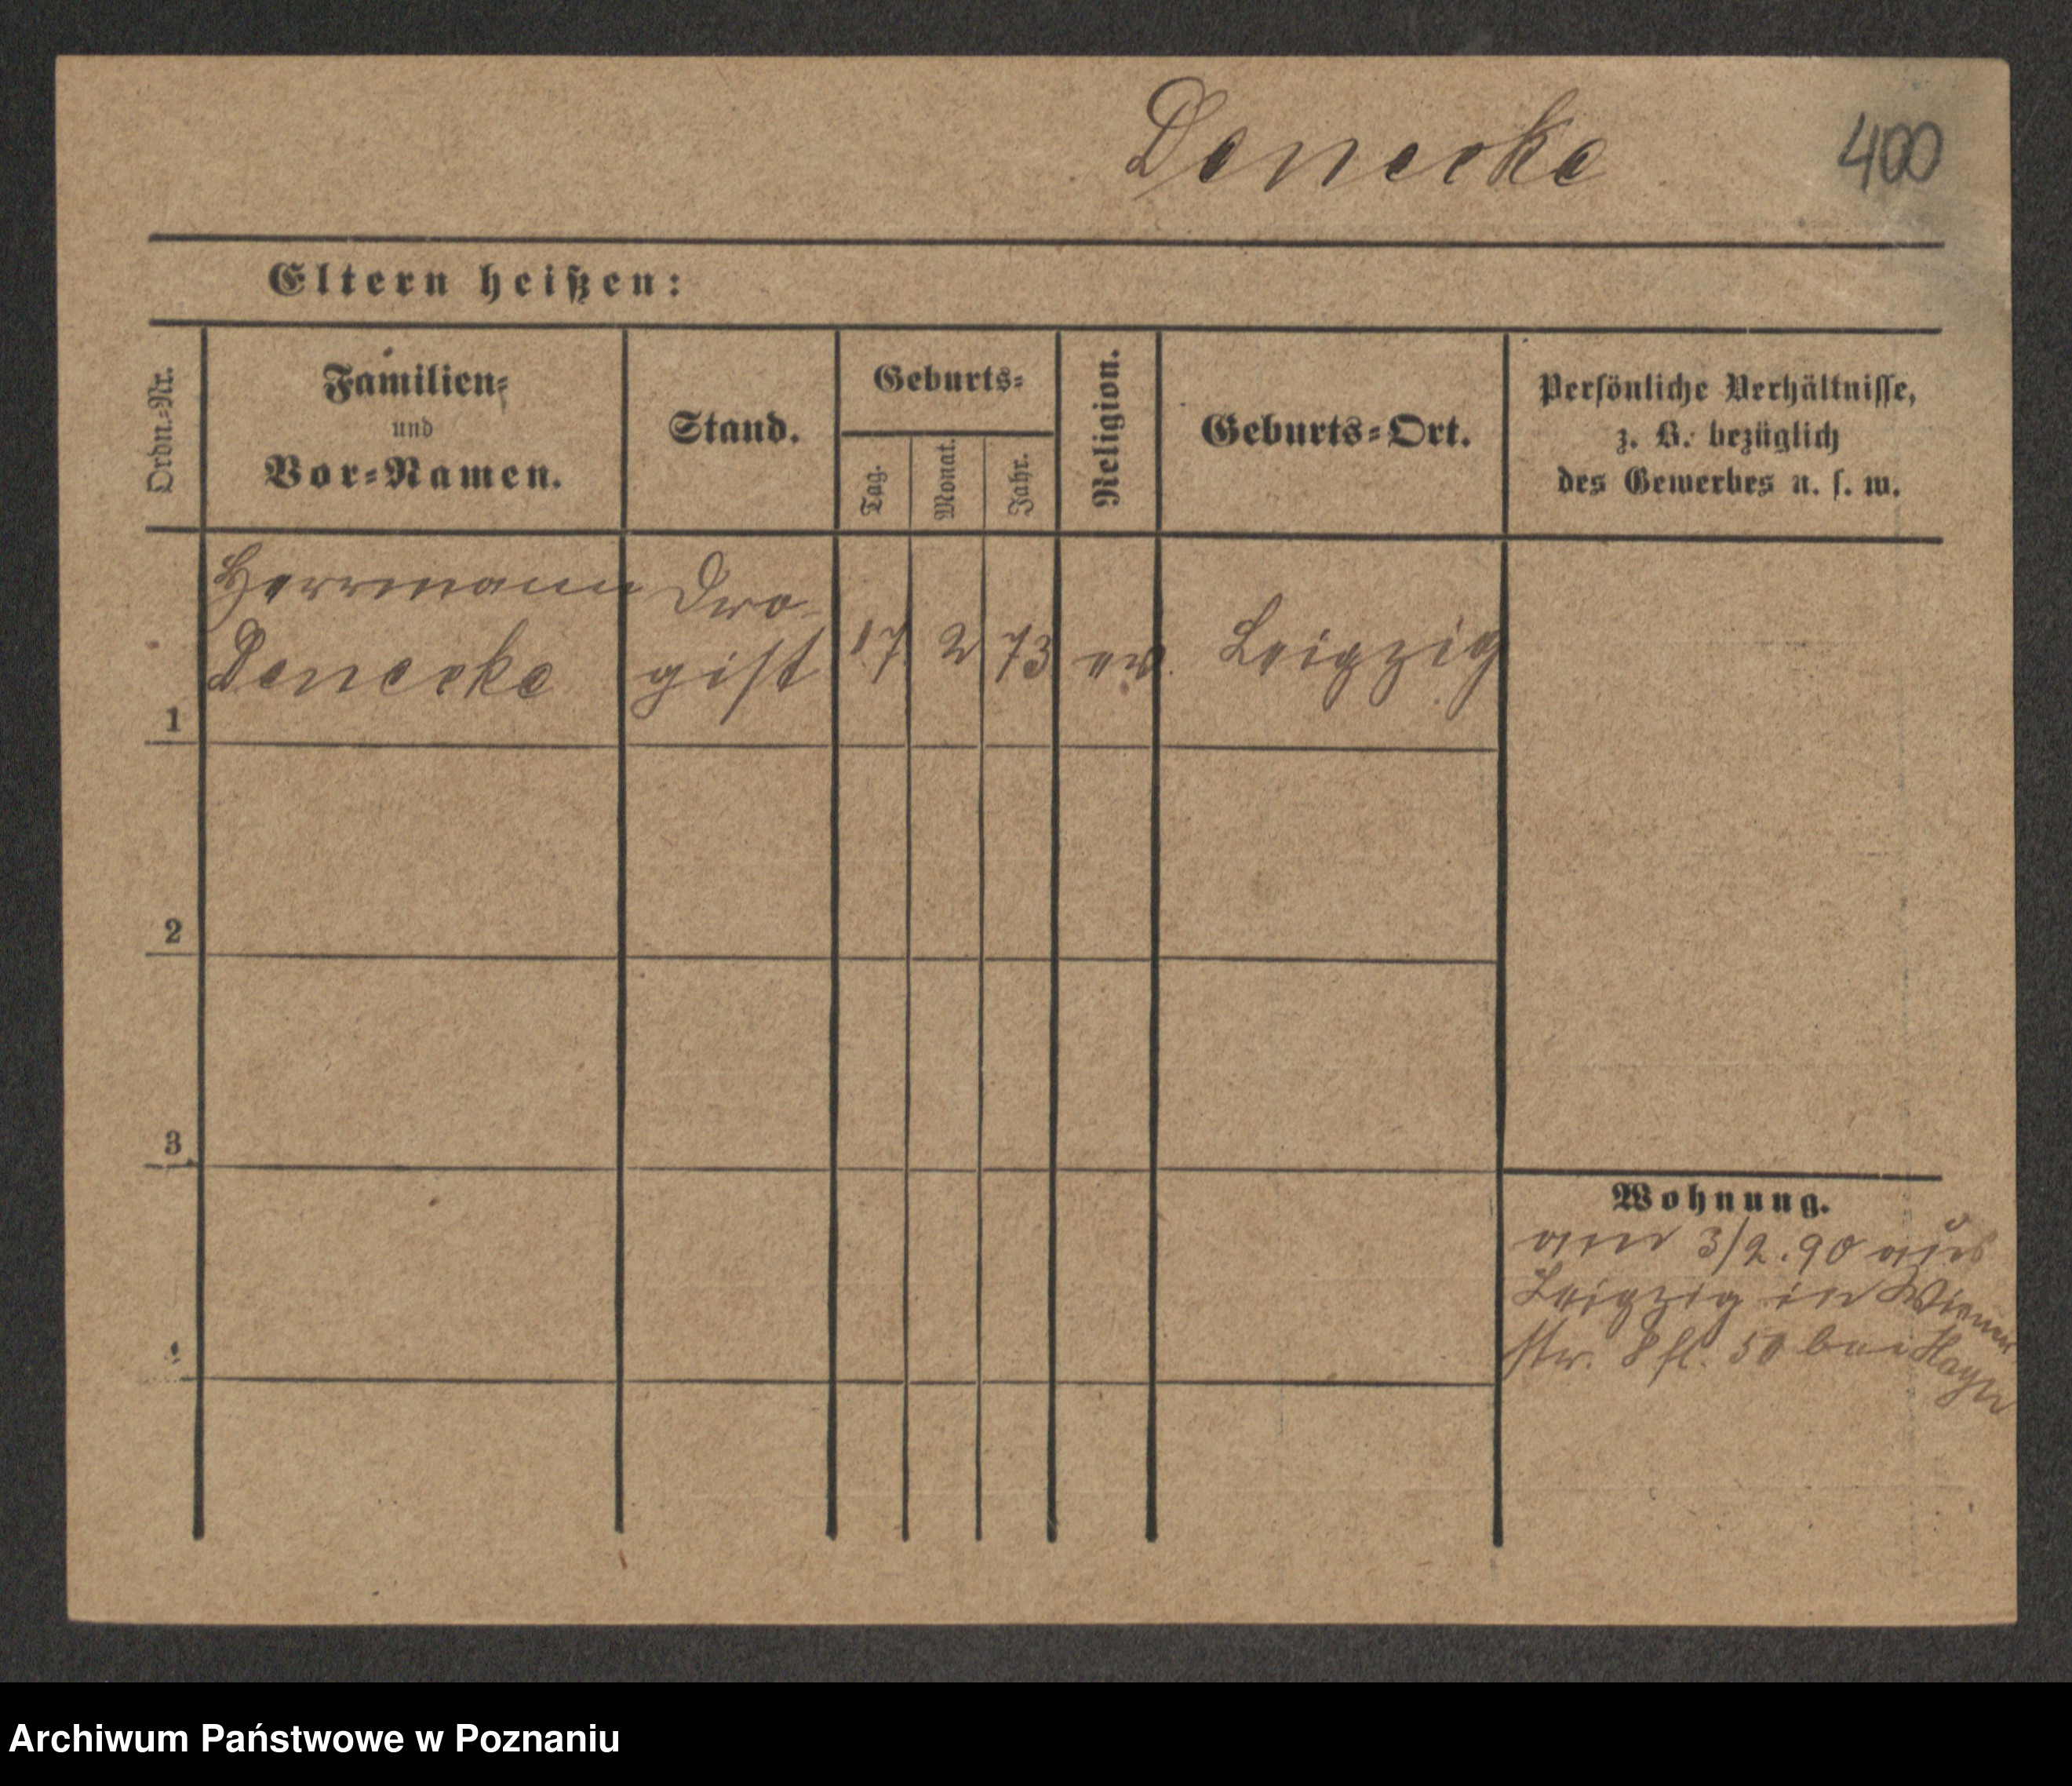 Denecke
400
Eltern heißen:
Ordn.=Nr.
Familien=
und
Vor=Namen.
Stand.
Geburts=
Tag.
Monat.
Jahr.
Religion.
Geburts=Ort.
Persönliche Verhältnisse,
z. B. bezüglich
des Gewerbes u. s. w.
Herrmann
Denecke
Dro-
gist
17
2
73
ev.
Leipzig
1
2
3
Wohnung.
am 3/2.90 aus
Leipzig in Wiener
str. 8 fl. 50 bei
Archiwum Państwowe w Poznaniu